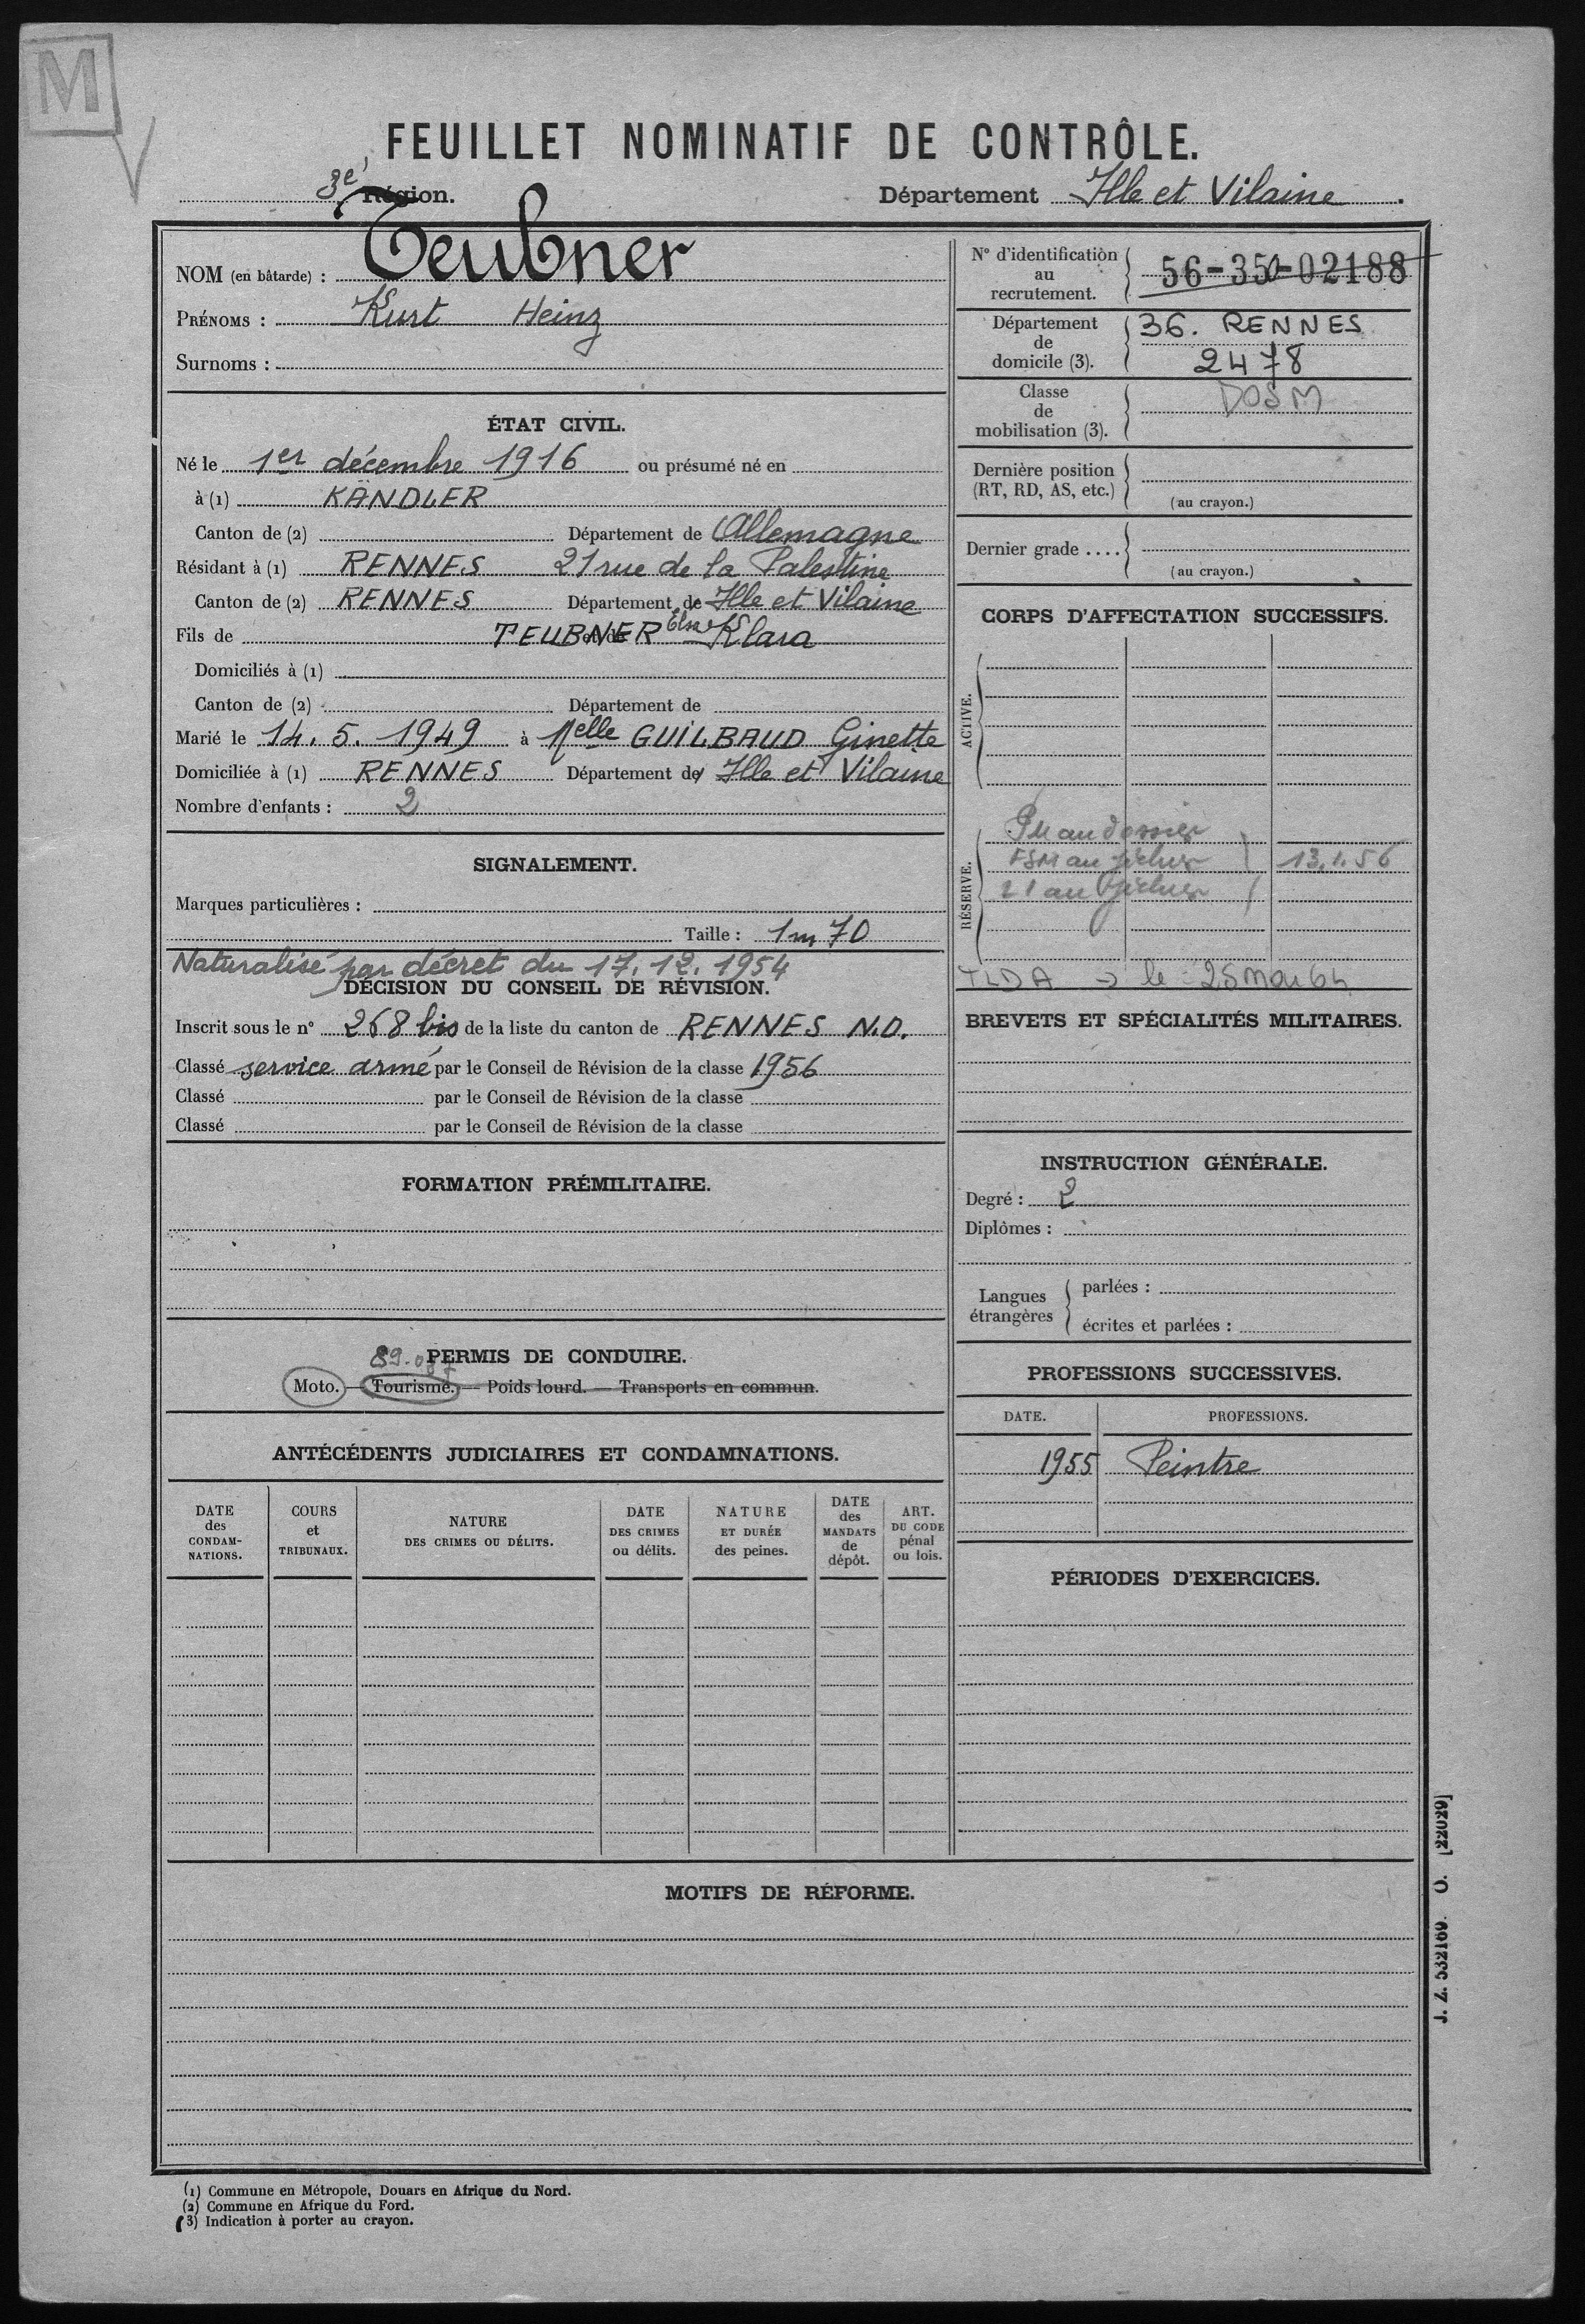 M
FEUILLET NOMINATIF DE CONTRÔLE.
3e Région. Département Ille et Vilaine.
NOM (en bâtarde) : Teubner
PRÉNOMS : Kurt Heinz
Surnoms :
ÉTAT CIVIL.
Né le 1er décembre 1916 ou présumé né en
à (1) KÄNDLER
Canton de (2) Département de Allemagne
Résidant à (1) RENNES 21 rue de la Palestine
Canton de (2) RENNES Département de Ille et Vilaine
Fils de et de TEUBNER Elsa Klara
Domiciliés à (1)
Canton de (2) Département de
Marié le 14. 5. 1949 à Melle GUILBAUD Ginette
Domiciliée à (1) RENNES Département de Ille et Vilaine
Nombre d'enfants : 2
SIGNALEMENT.
Marques particulières :
Taille : 1m 70
Naturalisé par décret du 17. 12. 1954
DÉCISION DU CONSEIL DE RÉVISION.
Inscrit sous le n° 268 bis de la liste du canton de RENNES N.O.
Classé service armé par le Conseil de Révision de la classe 1956
Classé par le Conseil de Révision de la classe
Classé par le Conseil de Révision de la classe
FORMATION PRÉMILITAIRE.
PERMIS DE CONDUIRE.
Moto. — Tourisme. — Poids lourd. — Transports en commun.
ANTÉCÉDENTS JUDICIAIRES ET CONDAMNATIONS.
DATE des CONDAM-NATIONS.
COURS et TRIBUNAUX.
NATURE DES CRIMES OU DÉLITS.
DATE DES CRIMES ou délits.
NATURE ET DURÉE des peines.
DATE des MANDATS de dépôt.
ART. DU CODE pénal ou lois.
N° d'identification au recrutement. 56-350-02188
Département de domicile (3). 36. RENNES
2478
Classe de mobilisation (3). DOSM
Dernière position (RT, RD, AS, etc.)
(au crayon.)
Dernier grade ....
(au crayon.)
CORPS D'AFFECTATION SUCCESSIFS.
ACTIVE.
RÉSERVE.
au dossier
FSM au fichier 13.1.56
21 au fichier
TLDA → le 25 Mai 64
BREVETS ET SPÉCIALITÉS MILITAIRES.
INSTRUCTION GÉNÉRALE.
Degré : 2
Diplômes :
Langues étrangères
parlées :
écrites et parlées :
PROFESSIONS SUCCESSIVES.
DATE. PROFESSIONS.
1955 Peintre
PÉRIODES D'EXERCICES.
MOTIFS DE RÉFORME.
J. Z. 532169. O. [22029]
(1) Commune en Métropole, Douars en Afrique du Nord.
(2) Commune en Afrique du Ford.
(3) Indication à porter au crayon.